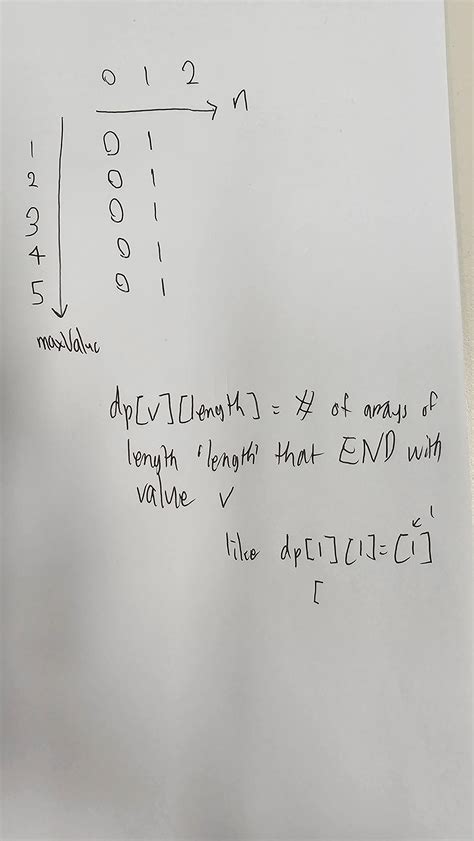 0 1 2
n
1 0 1
2 0 1
3 0 1
4 0 1
5 0 1
maxValue
dp[v][length] = # of arrays of
length 'length' that END with
value v
like dp[1][1] = [1] 1
[